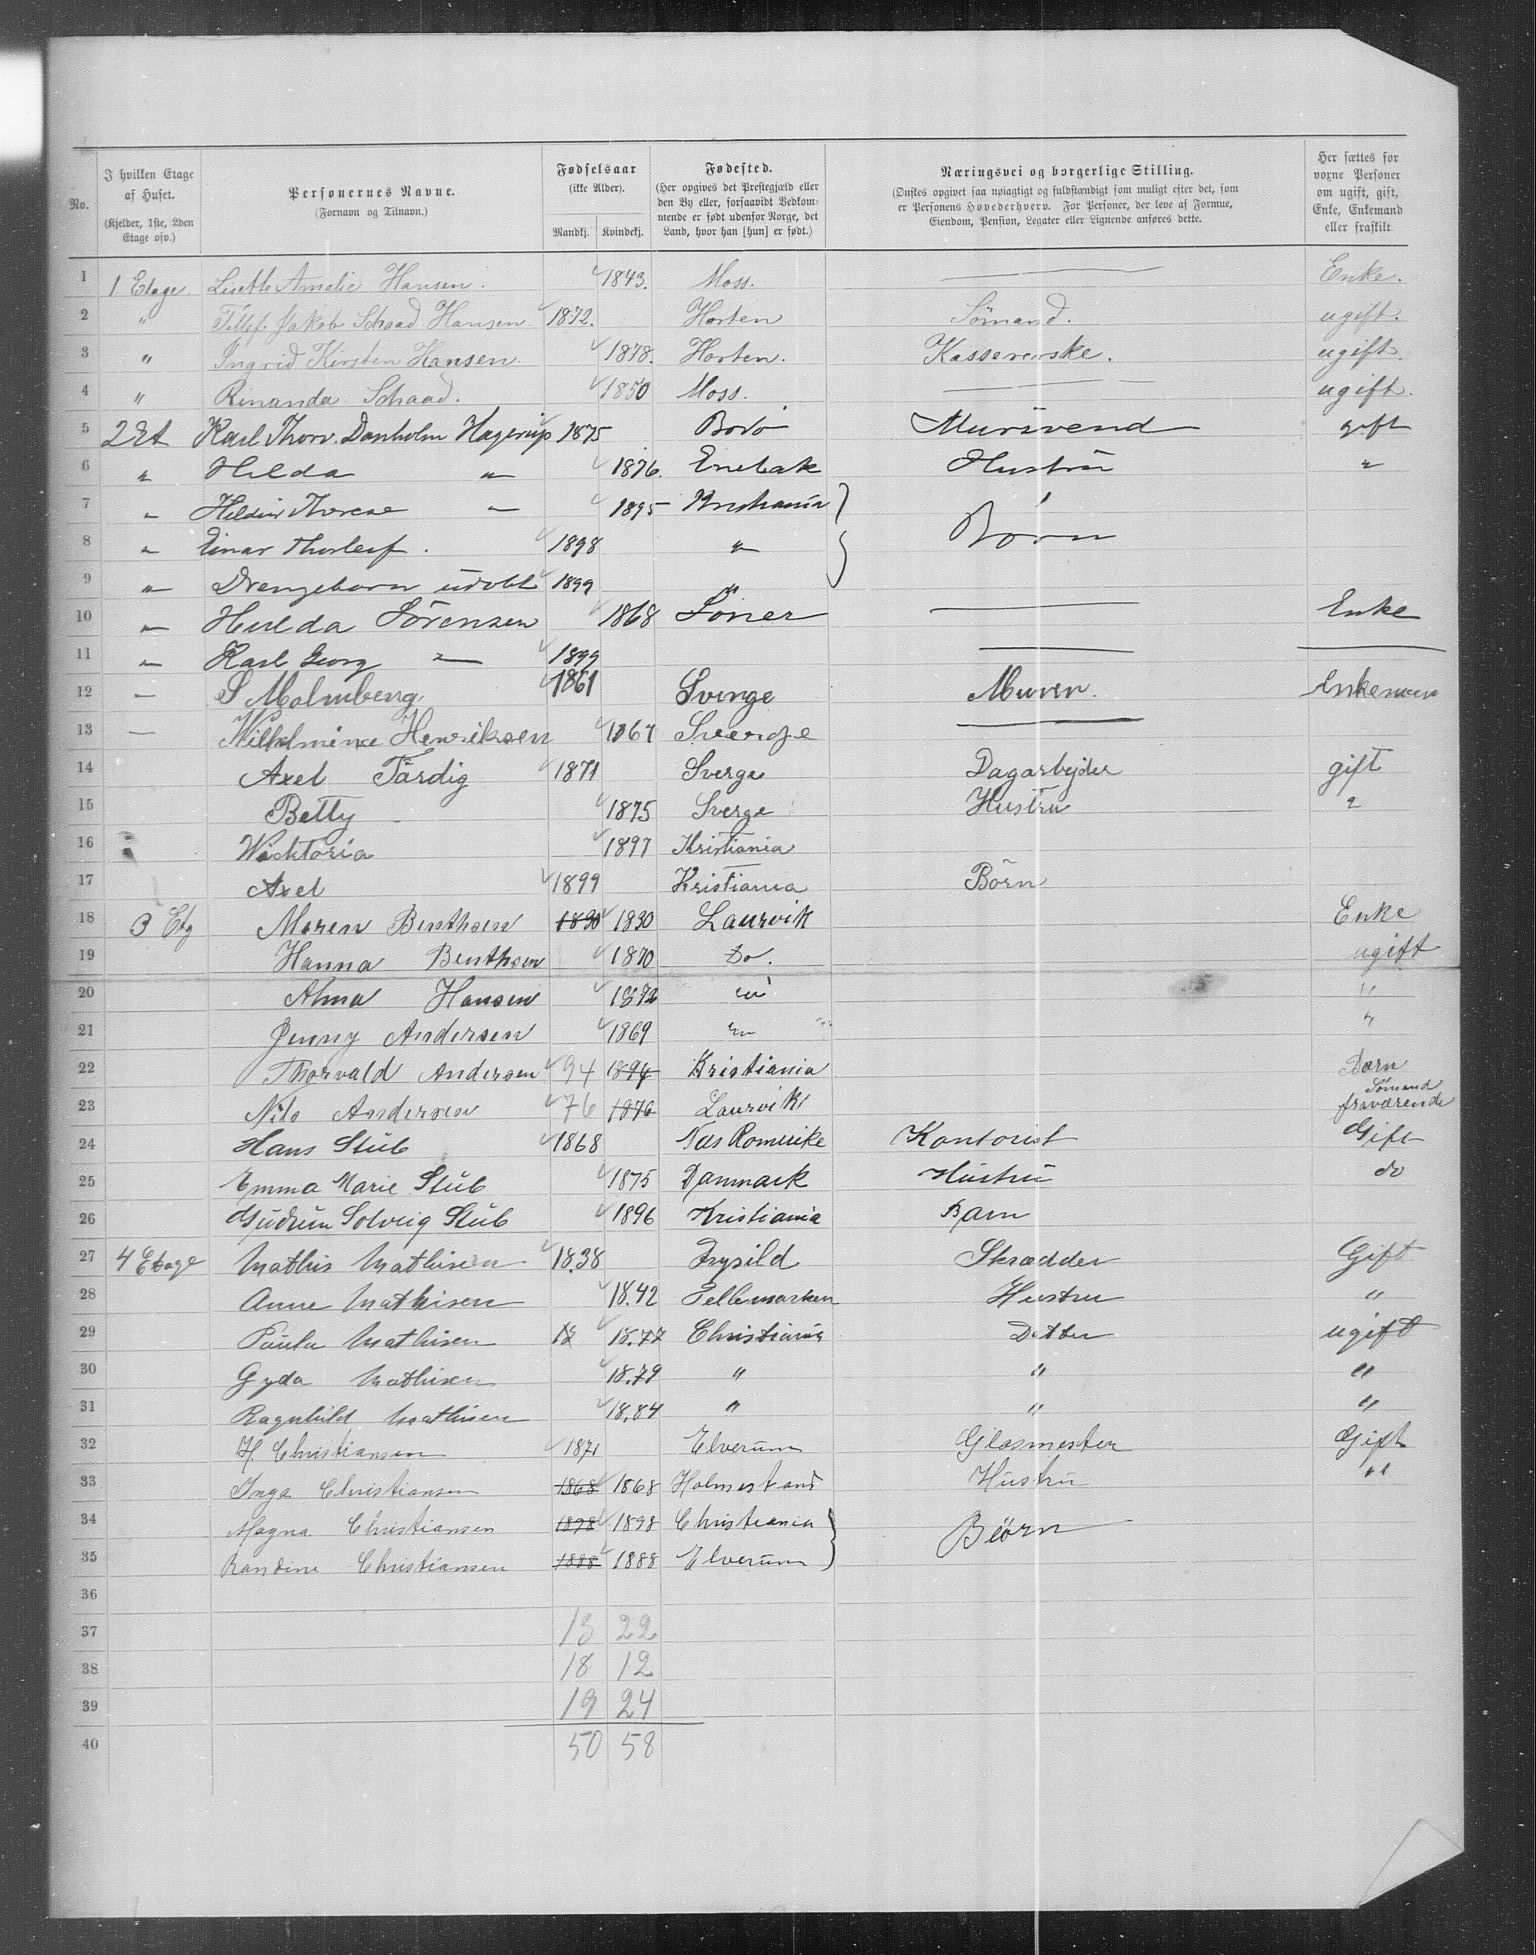 No. | I hvilken Etage af Huset. (Kjelder, 1ste, 2den Etage osv.) | Personernes Navne. (Fornavn og Tilnavn.) | Fødselsaar (ikke Alder). Mandkj. Kvindekj. | Fødested. (Her opgives det Prestegjæld eller den By eller, forsaavidt Vedkommende er født udenfor Norge, det Land, hvor han [hun] er født.) | Næringsvei og borgerlige Stilling. (Ønskes opgivet saa nøiagtigt og fuldstændigt som muligt efter det, som er Personens Hovederhverv. For Personer, der leve af Formue, Eiendom, Pension, Legater eller Lignende anføres dette. | Her sættes for voxne Personer om ugift, gift, Enke, Enkemand eller fraskilt.
1 1 Etage. Lisette Amalie Hansen. 1843. Moss. — Enke.
2 " Jakob Schaad Hansen. 1872. Horten Sömand. ugift.
3 " Ingrid Kirsten Hansen. 1878. Horten. ugift.
4 " Rinanda Schaad. 1850 Moss. — ugift.
5 2 Et Karl Thorv. Danholm Hagerup 1875 Bodö Mursvend gift
6 " Hilda " 1876. Enebak Hustru "
7 " Therese " 1895 Kristiania }
8 " Einar Thorleif. 1898 " } Børn
9 " Drengebarn udøbt 1899 "
10 " Hulda Sörensen 1868 — Enke
11 " Karl Georg " 1899 — —
12 — S Malmberg 1861 Sverge Murer. Enkeman
13 — Wilhelmine Henriksen 1867 Sverge —
14 Axel Färdig 1871 Sverge Dagarbejder gift
15 Betty - 1875 Sverge Hustru "
16 Wicktoria 1897 Kristiania
17 Axel 1899 Kristiania Börn
18 3 Etg Maren Benthsen 1830 1830 Laurvik Enke
19 Hanna Benthsen 1870 Do. ugift
20 Alma Hansen 1872 " "
21 Jenny Andersen 1869 " "
22 Thorvald Andersen 94 1894 Kristiania Barn
23 Nils Andersen 76 1876 Laurvik Sömand fraværende
24 Hans Stub 1868 Næs Romerike Kontorist Gift
25 Emma Marie Stub 1875 Danmark Hustru do
26 Gudrun Solveig Stub 1896 Kristiania Barn
27 4 Etage Mathis Mathisen 18.38 Trysild Skrædder Gift
28 Anne Mathisen 18.42 Tellemarken Hustru "
29 Paula Mathisen 18 18.77 Christiania Datter ugift
30 Gyda Mathisen 18.79 " " "
31 Ragnhild Mathisen 18.84 " " "
32 H. Christiansen 1871 Elverum Glasmester Gift
33 Inga Christiansen 1868 1868 Holmestrand Hustru "
34 Magna Christiansen 1898 1898 Christiania } Børn
35 Randine Christiansen 1888 1888 Elverum }
36
37 13 22
38 18 12
39 19 24
40 50 58